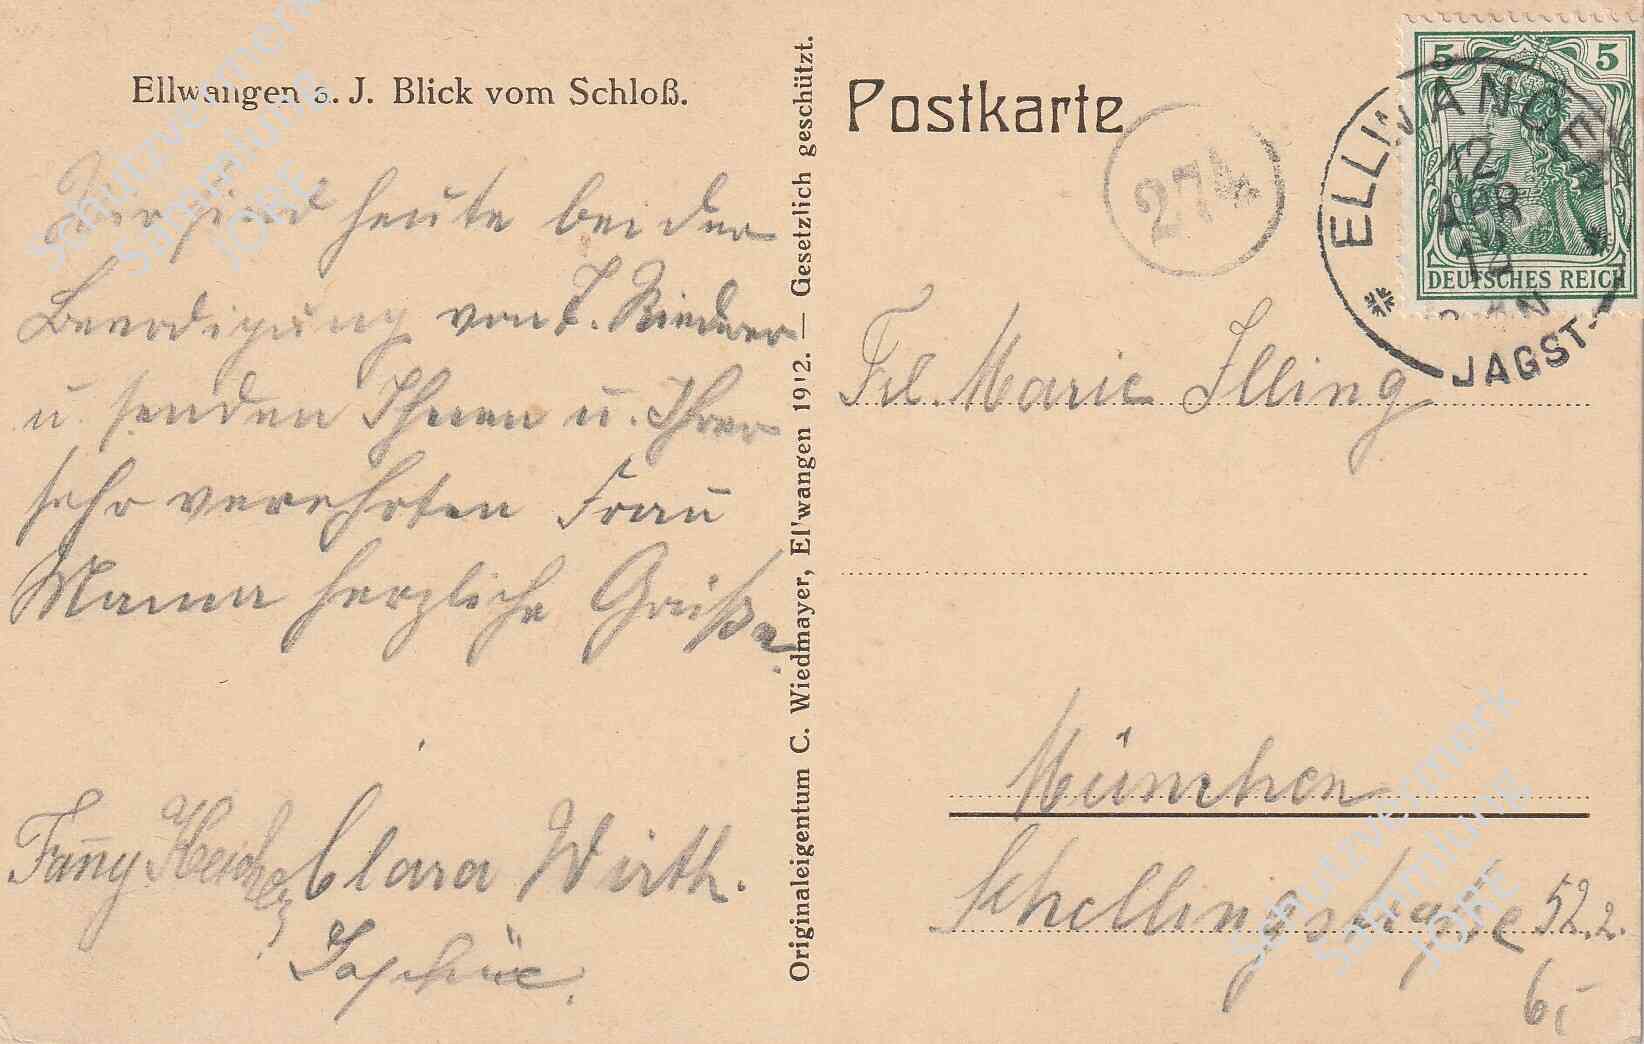 Ellwangen a. J. Blick vom Schloß.
Wir sind heute bei der
Beerdigung von
u. senden Ihnen u. Ihrer
sehr verehrten Frau
Mama herzliche Grüße.
Fanny
Clara Wirth.
Originaleigentum C. Wiedmayer, Ellwangen 1912. — Gesetzlich geschützt.
Postkarte
274
5 5
DEUTSCHES REICH
ELLWANGEN
12
APR
12
JAGST.
Frl. Marie Illing
München
Schellingstraße 52.2.
Schutzvermerk
Sammlung
JORE
Schutzvermerk
Sammlung
JORE